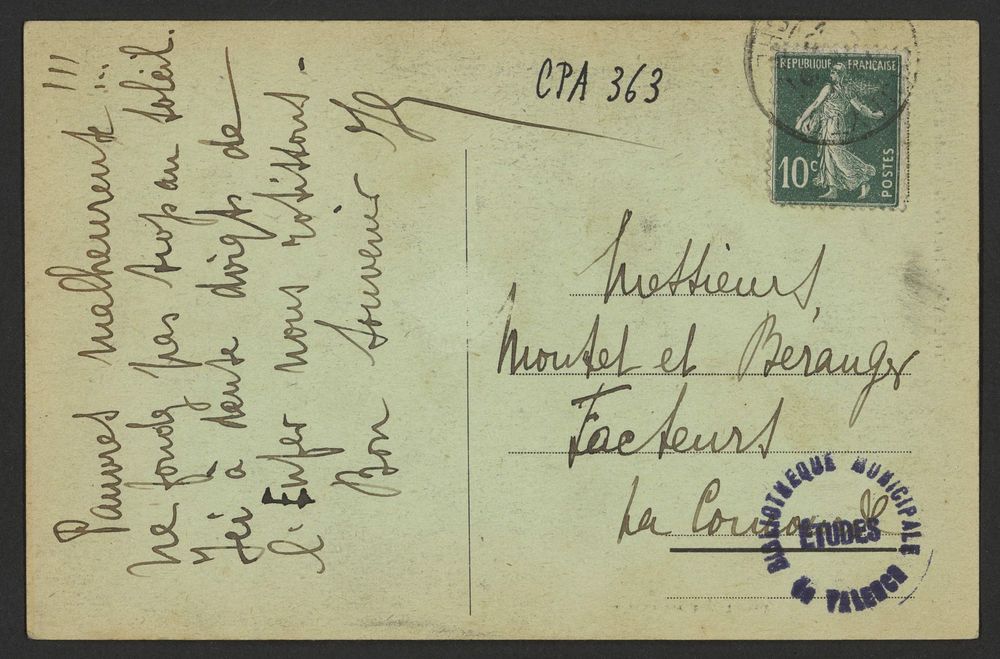 Pauvres malheureux !!!
ne fondez pas trop au soleil.
Ici à trente doigts de
l'Enfer nous rôtissons.
Bon souvenir
CPA 363
REPUBLIQUE FRANÇAISE
10c
POSTES
Messieurs,
Montel et Béranger
Facteurs
La
BIBLIOTHEQUE MUNICIPALE
ETUDES
de VALENCE